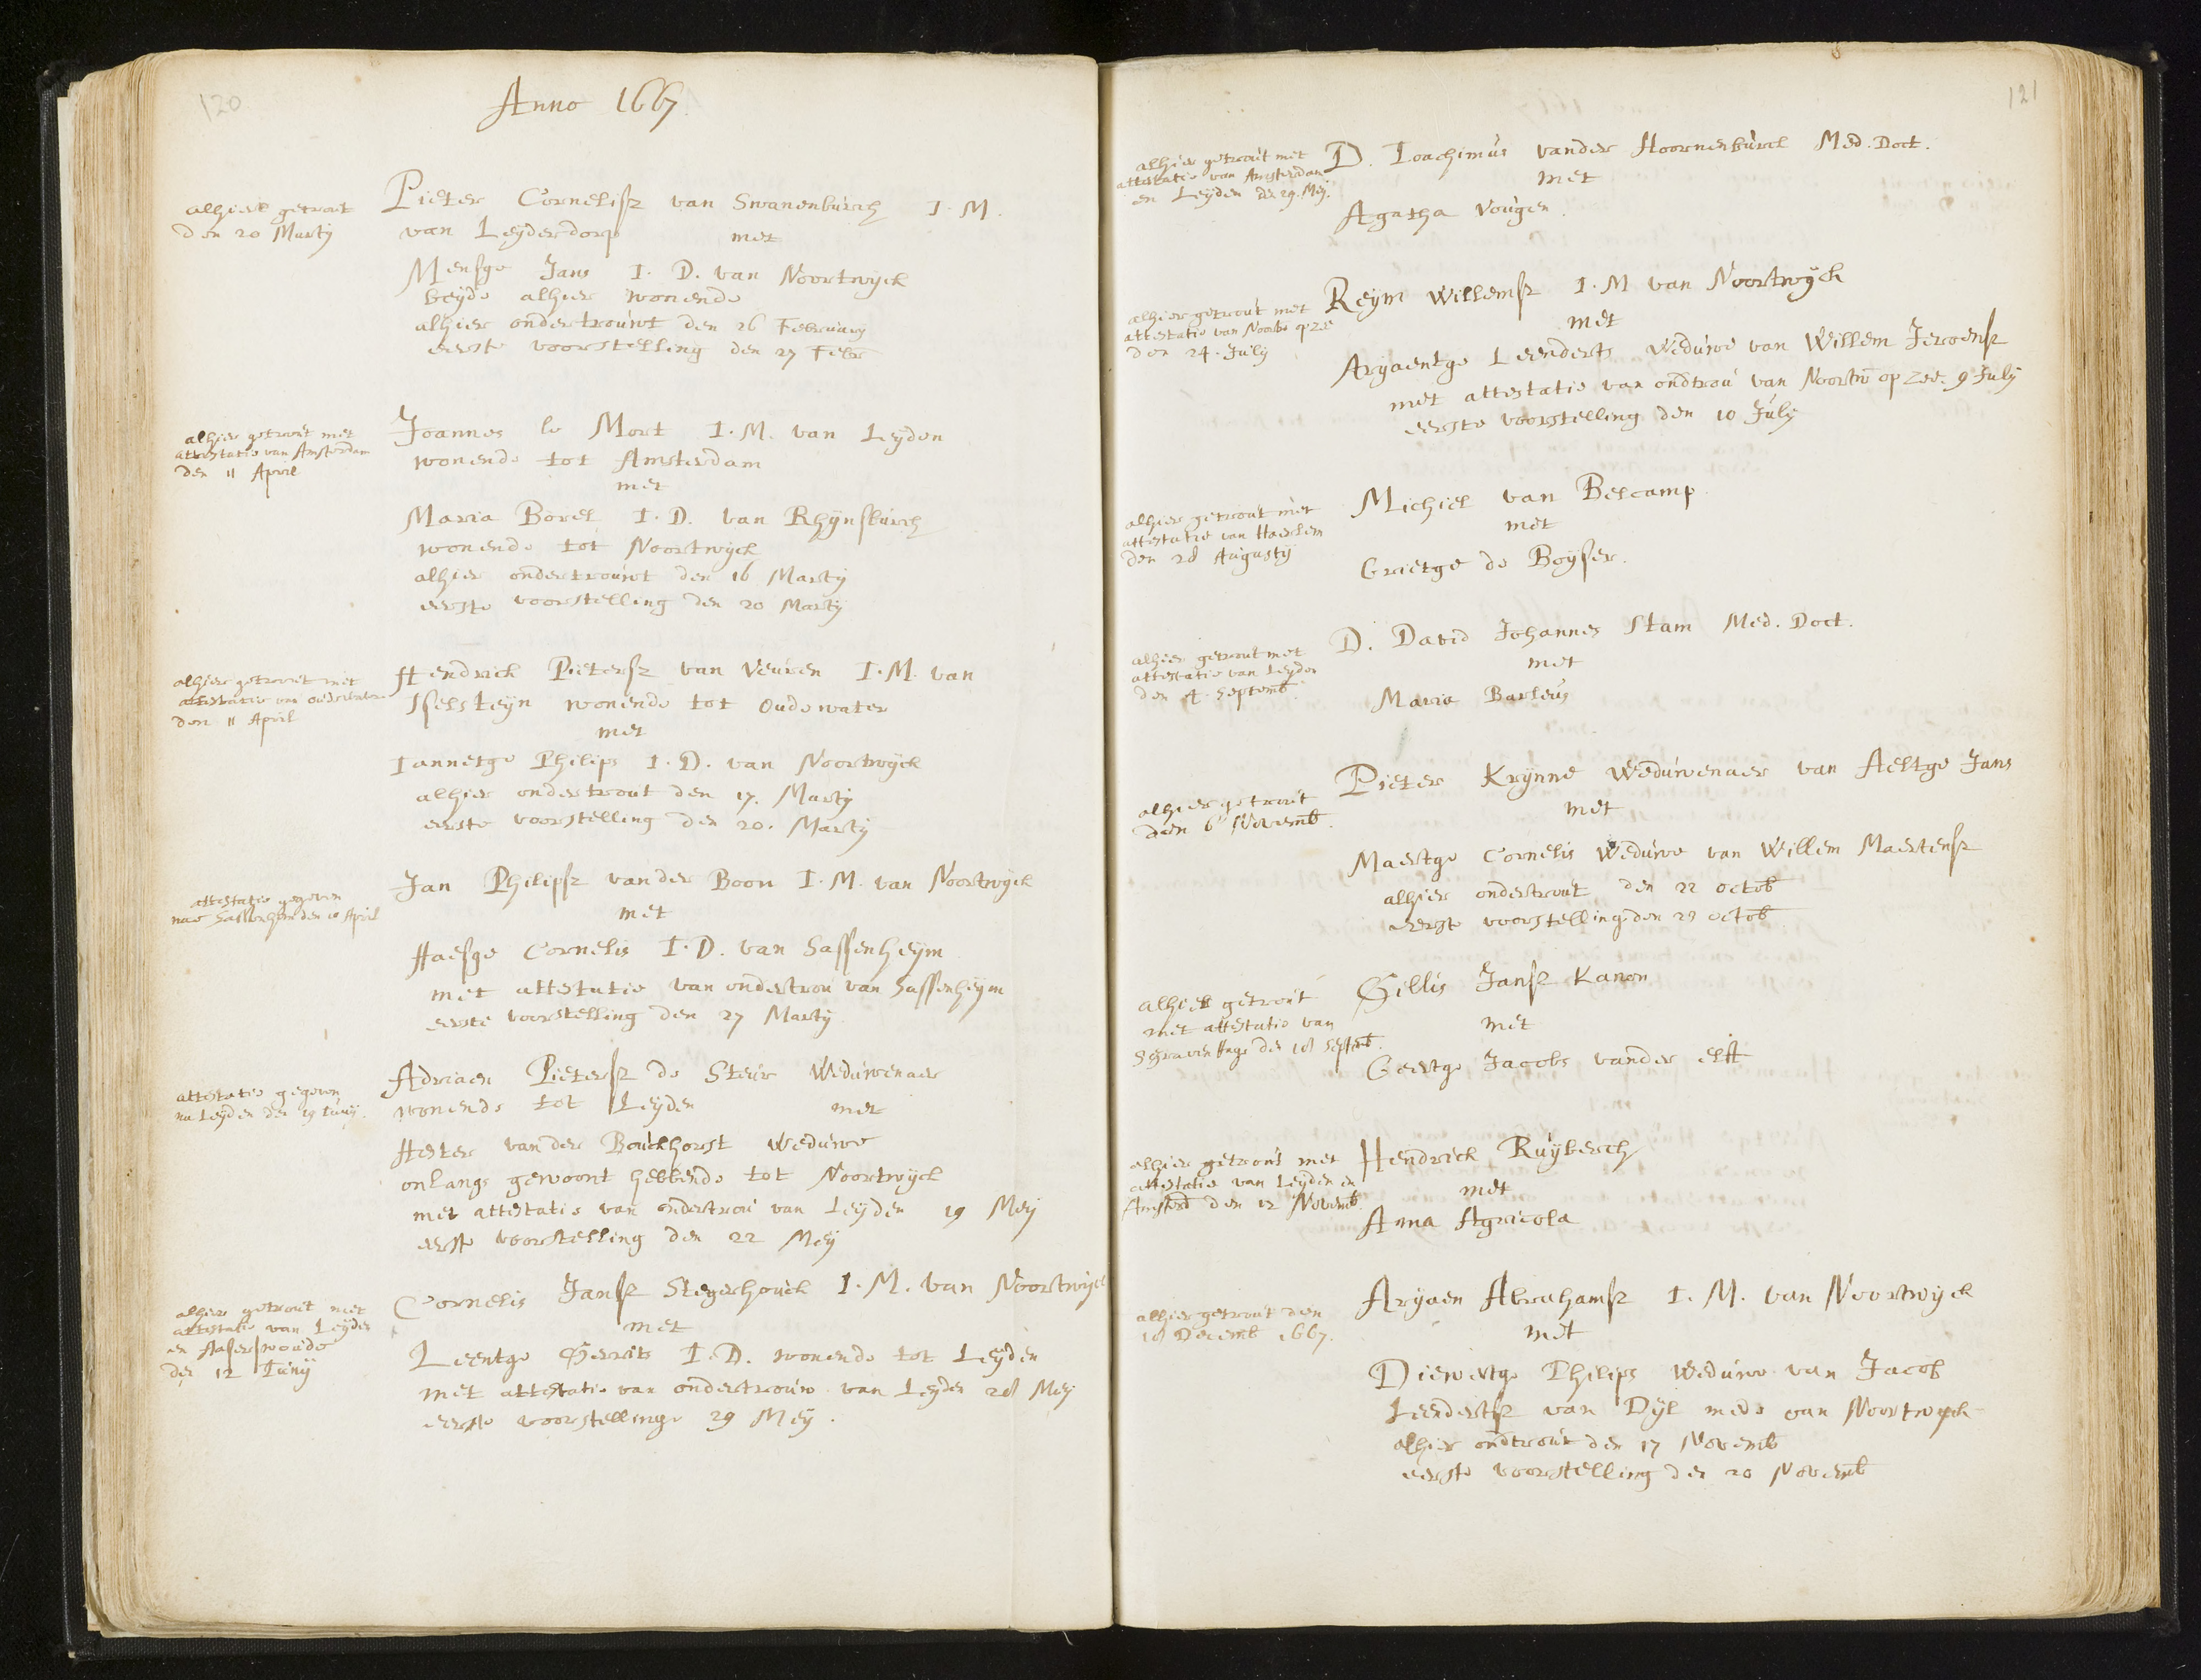 120
Anno 1667.
alhier getrout
den 20 Martij
Pieter Cornelisz van Swanenburch I. M.
van Leyderdorp met
Mensge Jans I. D. van Noortwijck
beyde alhier wonende
alhier ondertrouwt den 26 February
eerste voorstelling den 27 Febr
alhier getrout met
attestatie van Amsterdam
den 11 April
Joannes le Mort I. M. van Leyden
wonende tot Amsterdam
met
Maria Borel I. D. van Rhynsburch
wonende tot Noortwyck
alhier ondertrouwt den 16 Martij
eerste voorstelling den 20 Martij
alhier getrout met
attestatie van oudewater
den 11 April
Hendrick Pietersz van Veuren I. M. van
Iselsteyn wonende tot Oudewater
met
Iannetge Philips I. D. van Noortwyck
alhier ondertrout den 17. Martij
eerste voorstelling den 20. Martij
attestatie gegeven
nae Sassenhem den 10 April
Jan Philipsz vander Boon I. M. van Noortwyck
met
Haesge Cornelis I. D. van Sassenheym
met attestatie van ondertrou van Sassenheym
eerste voorstelling den 27 Martij
attestatie gegeven
na Leyden den 19 Iunij.
Adriaen Pietersz de Steur Weduwenaer
wonende tot Leyden met
Hester vander Bouckhorst Weduwe
onlangs gewoont hebbende tot Noortwyck
met attestatie van ondertrou van Leyden 19 Mey
eerste voorstelling den 22 Mey
alhier getrout met
attestatie van Leyden
en Haserswoude
den 12 Iunij
Cornelis Jansz Stegerhouck I. M. van Noortwijck
met
Leentge Gerrits I. D. wonende tot Leyden
met attestatie van ondertrouw van Leyden 28 Mey
eerste voorstellinge 29 Mey.
121
alhier getrout met
attestatie van Amsterdam
en Leyden den 29. Mey.
D. Ioachimus vander Hoornenburch Med. Doct.
met
Agatha Vougen.
alhier getrout met
attestatie van Noortw op zee
den 24. July
Reym Willemsz I. M van Noortwyck
met
Aryaentge Leenderts Weduwe van Willem Jeroensz
met attestatie van ondtrou van Noortw op zee. 9 July
eerste voorstelling den 10 July
alhier getrout met
attestatie van Haerlem
den 28 Augustij
Michiel van Belcamp
met
Grietge de Boyser.
alhier getrout met
attestatie van Leyden
den 4. Septemb
D. David Johannes Stam Med. Doct.
met
Maria Barleus
alhier getrout
den 6 Novemb.
Pieter Krynne Weduwenaer van Aeltge Jans
met
Maertge Cornelis Weduwe van Willem Maertensz
alhier ondertrout den 22 octob
eerste voorstellinge den 23 octob
alhier getrout
met attestatie van
SGravenhage den 18 Septemb.
Gillis Jansz Kanon
met
Geertge Jacobs vander elst
alhier getrout met
attestatie van Leyden en
Amsterd den 12 Novemb.
Hendrick Ruyberch
met
Anna Agricola
alhier getrout den
18 Decemb 1667.
Aryaen Abrahamsz I. M. van Noortwyck
met
Diewertge Philips Weduwe van Jacob
Leendertsz van Dyl mede van Noortwyck
alhier ondtrout den 17 Novemb
eerste voorstelling den 20 Novemb